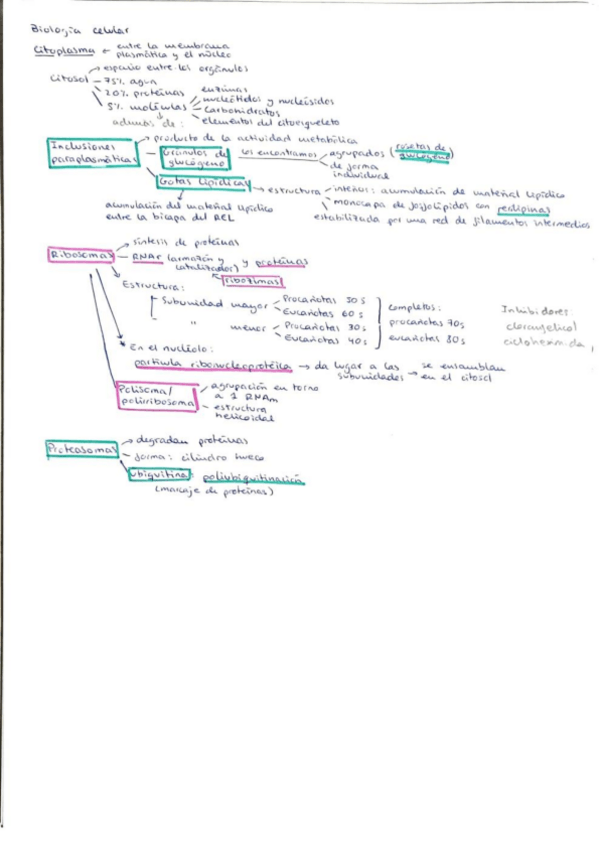 Biología celular
Citoplasma entre la membrana plasmática y el núcleo
Citosol
espacio entre los orgánulos
75% agua
20% proteínas
5% moléculas
enzimas
nucleótidos y nucleósidos
carbohidratos
elementos del citoesqueleto
además de:
Inclusiones paraplasmáticas
producto de la actividad metabólica
Gránulos de glucógeno
los encontramos
agrupados (rosetas de glucógeno)
de forma individual
Gotas lipídicas
estructura
interior: acumulación de material lipídico
monocapa de fosfolípidos con perilipinas
estabilizada por una red de filamentos intermedios
acumulación del material lipídico
entre la bicapa del REL
Ribosomas
síntesis de proteínas
RNAr (armazón y catalizador) y proteínas
ribozimas
Estructura:
Subunidad mayor
Procariotas 50s
Eucariotas 60s
" menor
Procariotas 30s
Eucariotas 40s
completos:
procariotas 70s
eucariotas 80s
Inhibidores
cicloheximida
En el nucléolo:
partícula ribonucleoproteica → da lugar a las subunidades → se ensamblan en el citosol
Polisoma/
polirribosoma
agrupación en torno
a 1 RNAm
estructura
helicoidal
Proteasomas
degradan proteínas
forma: cilindro hueco
ubiquitina: poliubiquitinación
(marcaje de proteínas)